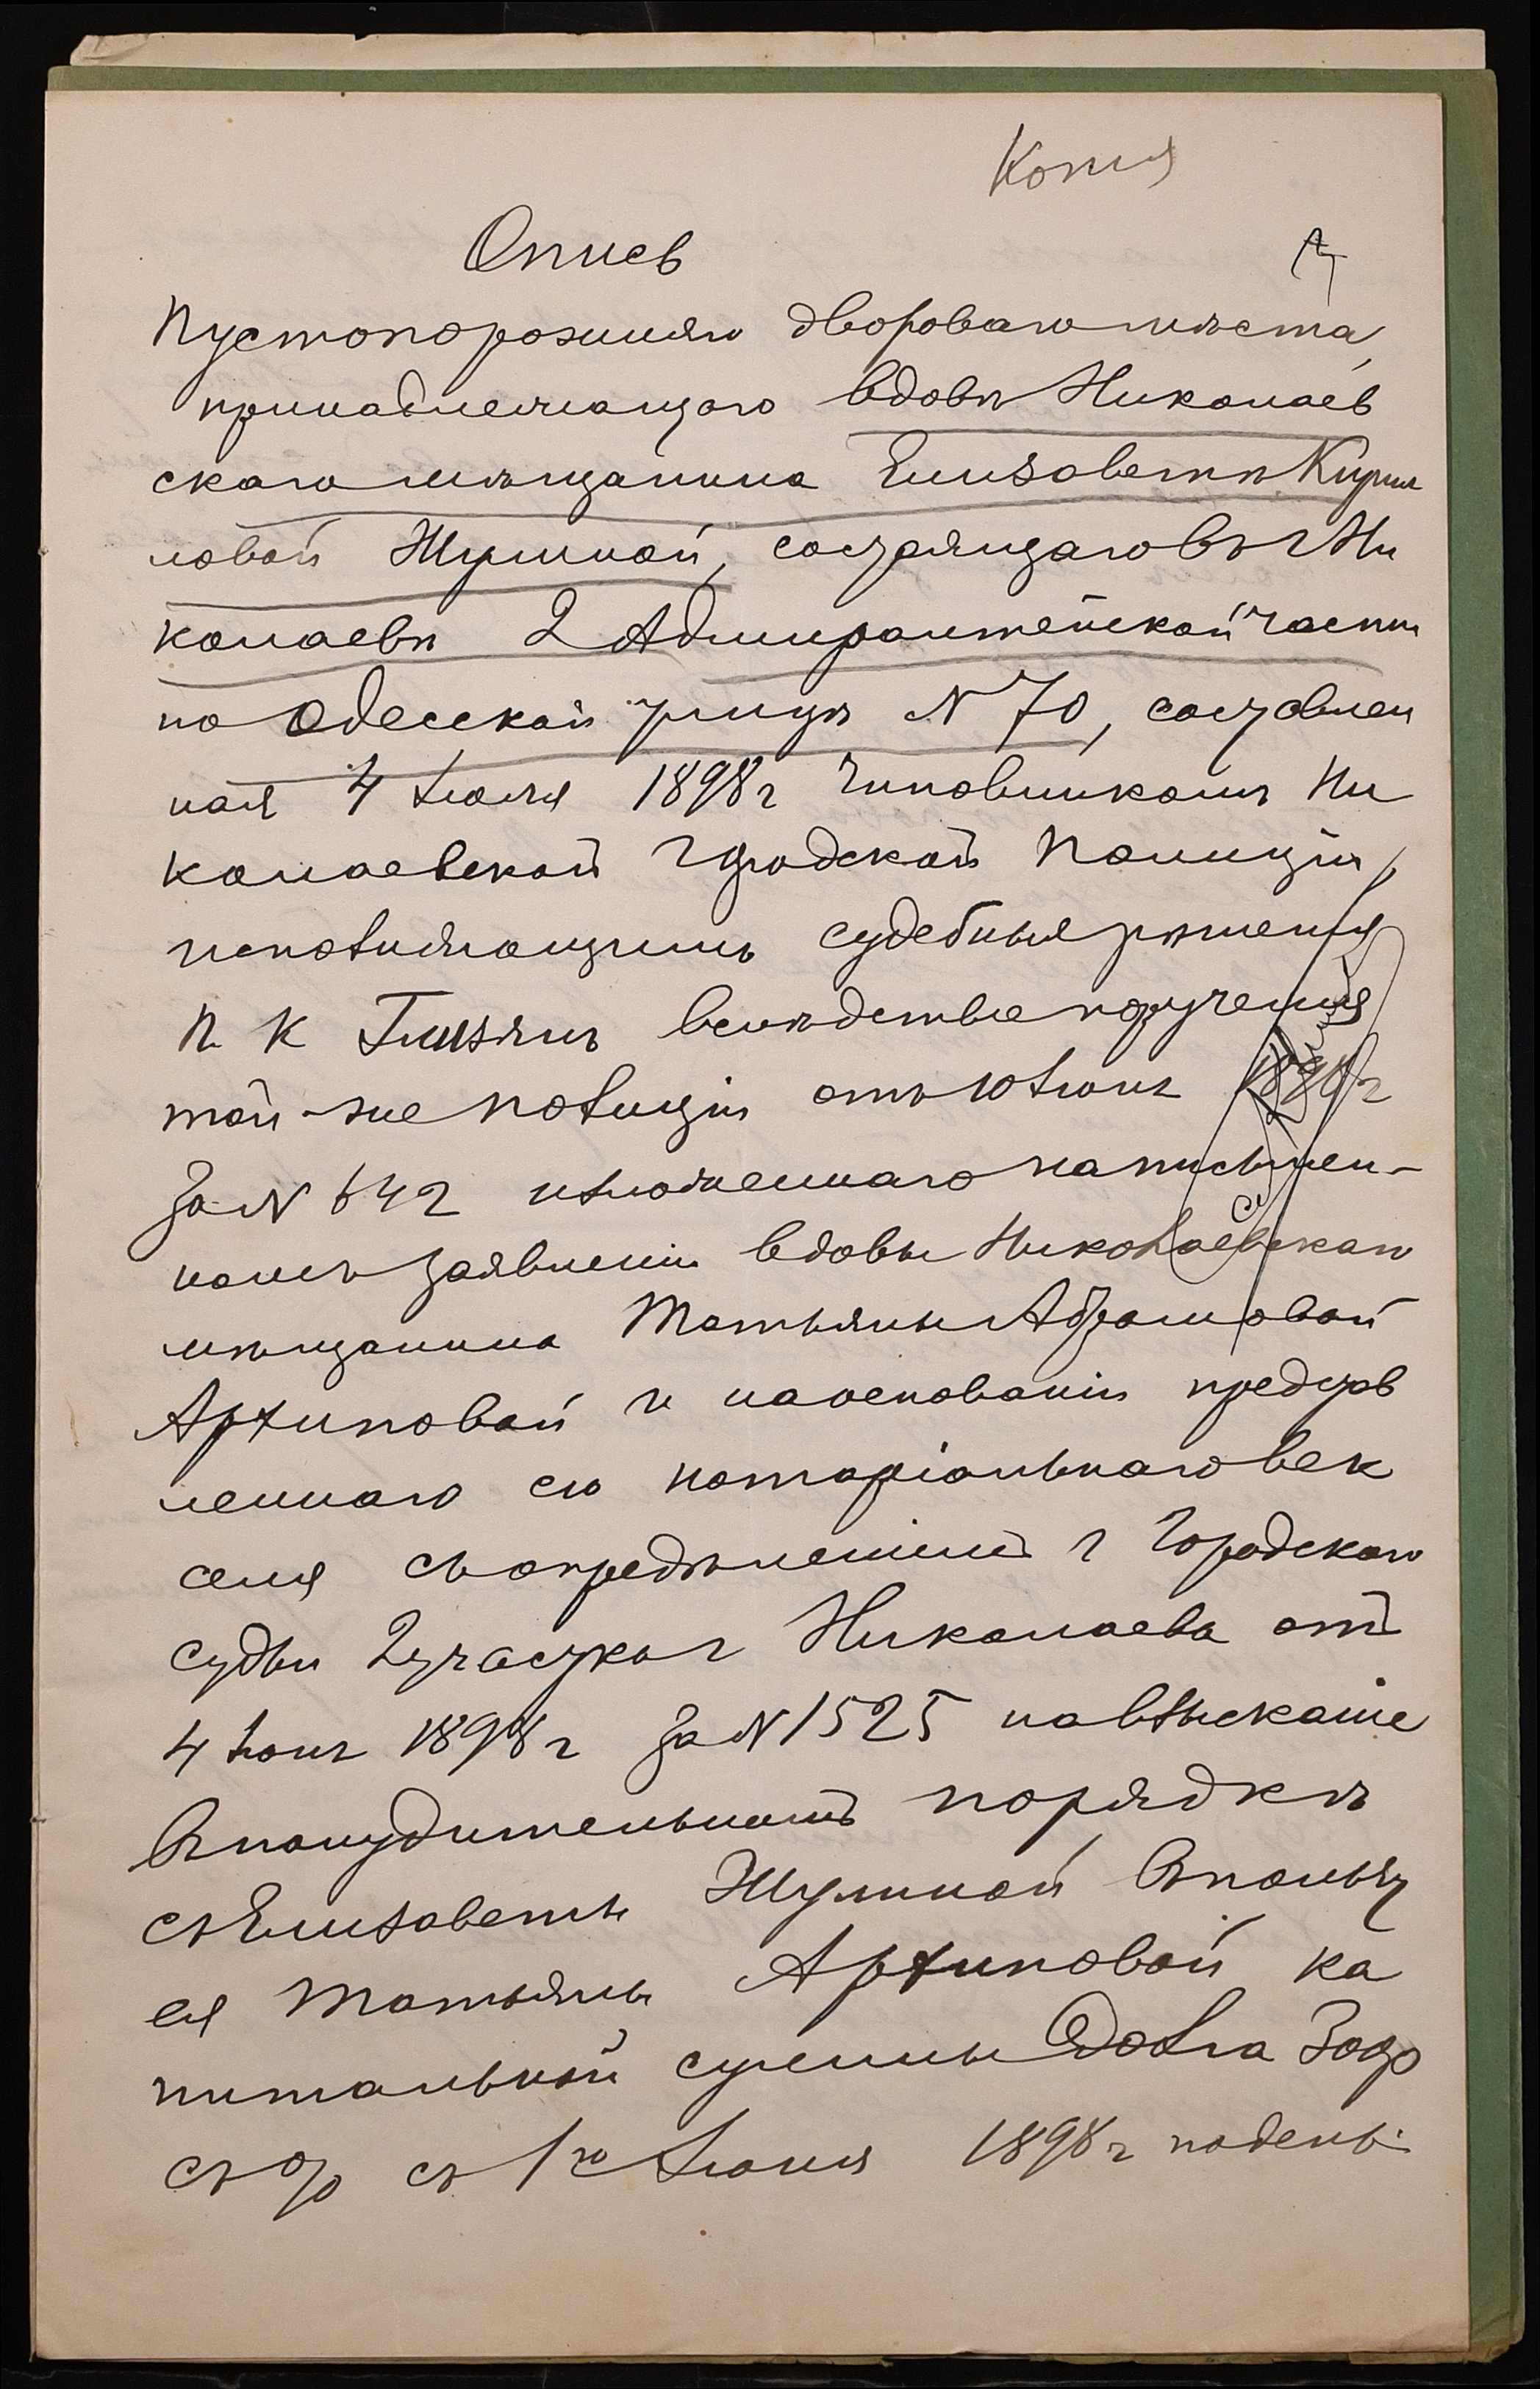 Копия
Опись
Пустопорожняго двороваго мѣста,
принадлежащаго вдовѣ Николаев
скаго мѣщанина Елизаветѣ Кирил
ловой Шумной, состоящаго въ г Ни
колаевѣ 2 Адмиралтейской части
по Одесской улицѣ N 70, составлен
ная 4 Июля 1898 г Чиновникомъ Ни
колаевской Городской Полиціи,
исполняющимъ судебныя рѣшенія
П. К вслѣдствіе порученія
той-же полиціи отъ 10 Июня г
За N 642 изложеннаго на письмен-
номъ заявленіи вдовы Николаевскаго
мѣщанина Татьяны Абрамовой
Архиповой и на основаніи предъяв
леннаго ею нотаріальнаго век
селя съ опредѣленіемъ г Городского
судьи 2 участка г Николаева отъ
4 Июня 1898 г За N 1525 на взысканіе
въ понудительномъ порядкѣ
съ Елизаветы Шумной въ пользу
ея Татьяны Архиповой ка
питальной суммы долга 300 р
съ % съ 1го Июня 1898 г по день